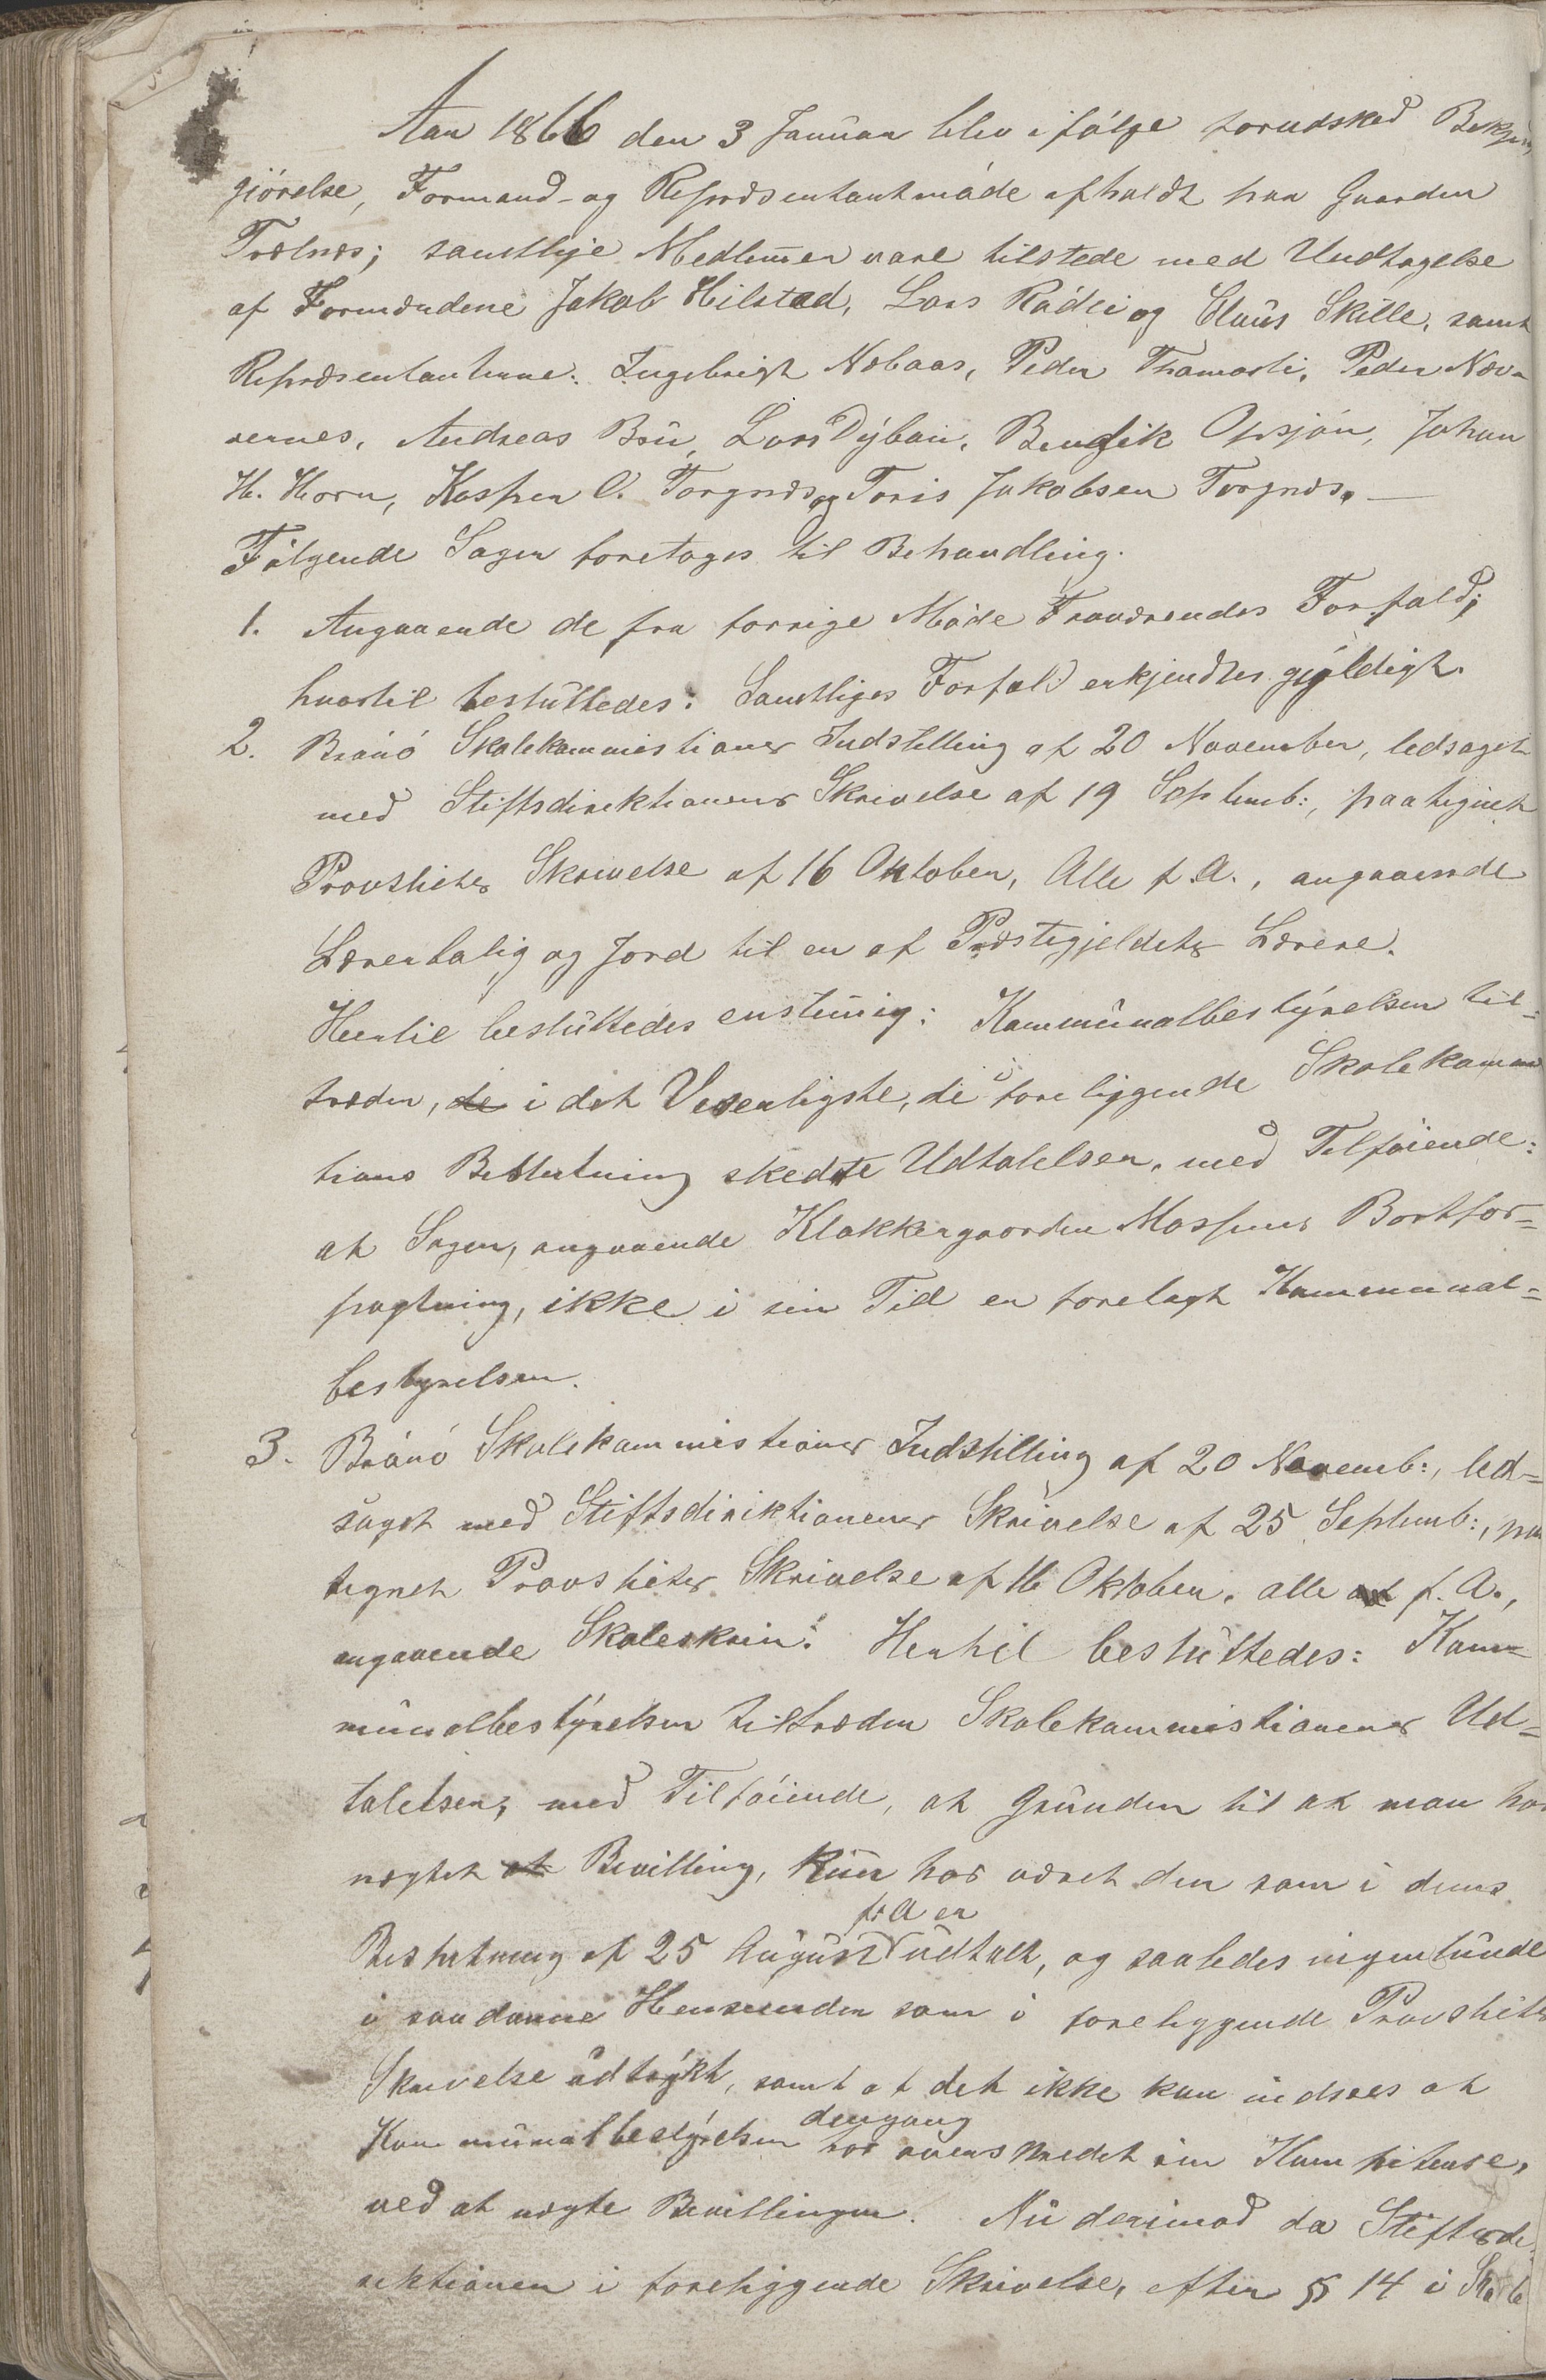 Aar 1866 den 3 Januar blev ifölge forudsked Bekjendt
gjörelse, Formand- og Repræsentantmöde afholdt paa Gaarden
Trælnæs; samtlige Medlemmer vare tilstede med Undtagelse
af Formændene Jakob Hilstad, Lars Rödli og Claus Skille, samt
Repræsentanterne: Ingebrigt Nebaas, Peder Thamasli, Peder Næv-
vernes, Andreas Brü, Lars Dybau, Bendik Opsjön, Johan
H. Horn, Kasper O. Torgnæs og Toris Jakobsen Torgnæs. —
Fölgende Sager foretoges til Behandling.
1. Angaaende de fra forrige Möde Fraværendes Forfald;
hvortil besluttedes: Samtliges Forfald erkjendtes gyldigt.
2. Brönö Skolekommistions Indstilling af 20 November, ledsaget
med Stiftsdirektionens Skrivelse af 19 Septemb:, paategnet
Provstiets Skrivelse af 16 Oktober, Alle f.A., angaaende
Lærerbolig og Jord til en af Præstegjeldets Lærere.
Hertil besluttedes enstemig: Kommunalbestyrelsen til-
træder, de i det Vesentligste, de i foreliggende Skolekommis
tions Beslutning skedte Udtalelser, med Tilföiende:
at Sagen, angaaende Klokkergaarden Mosfuns Bortfor-
pagtning, ikke i sin Tid er forelagt Kommunal-
bestyrelsen.
3. Brönö Skolekommistions Indstilling af 20 Novemb:, led-
saget med Stiftsdirektionens Skrivelse af 25 Septemb:, paa
tegnet Provstiets Skrivelse af 16 Oktober. alle f. A.,
angaaende Skoleskrin: Hertil besluttedes: Kom-
munalbestyrelsen tiltræder Skolekommistionens Ud-
talelser, med Tilföiende, at Grunden til at man har
nægtet at Bevilling, kun har været den som i dens
Beslutning af 25 August f:A er udtalt, og saaledes ingenlunde
i saadanne Henseender som i foreliggende Provstiets
Skrivelse udtrykt, samt at det ikke kan indsees at
Kommunalbestyrelsen dengang har overskredet sin Kompitense,
ved at nægte Bevillingen. Nu derimod da Stiftsdi-
rektionen i foreliggende Skrivelse, efter § 14 i Skole